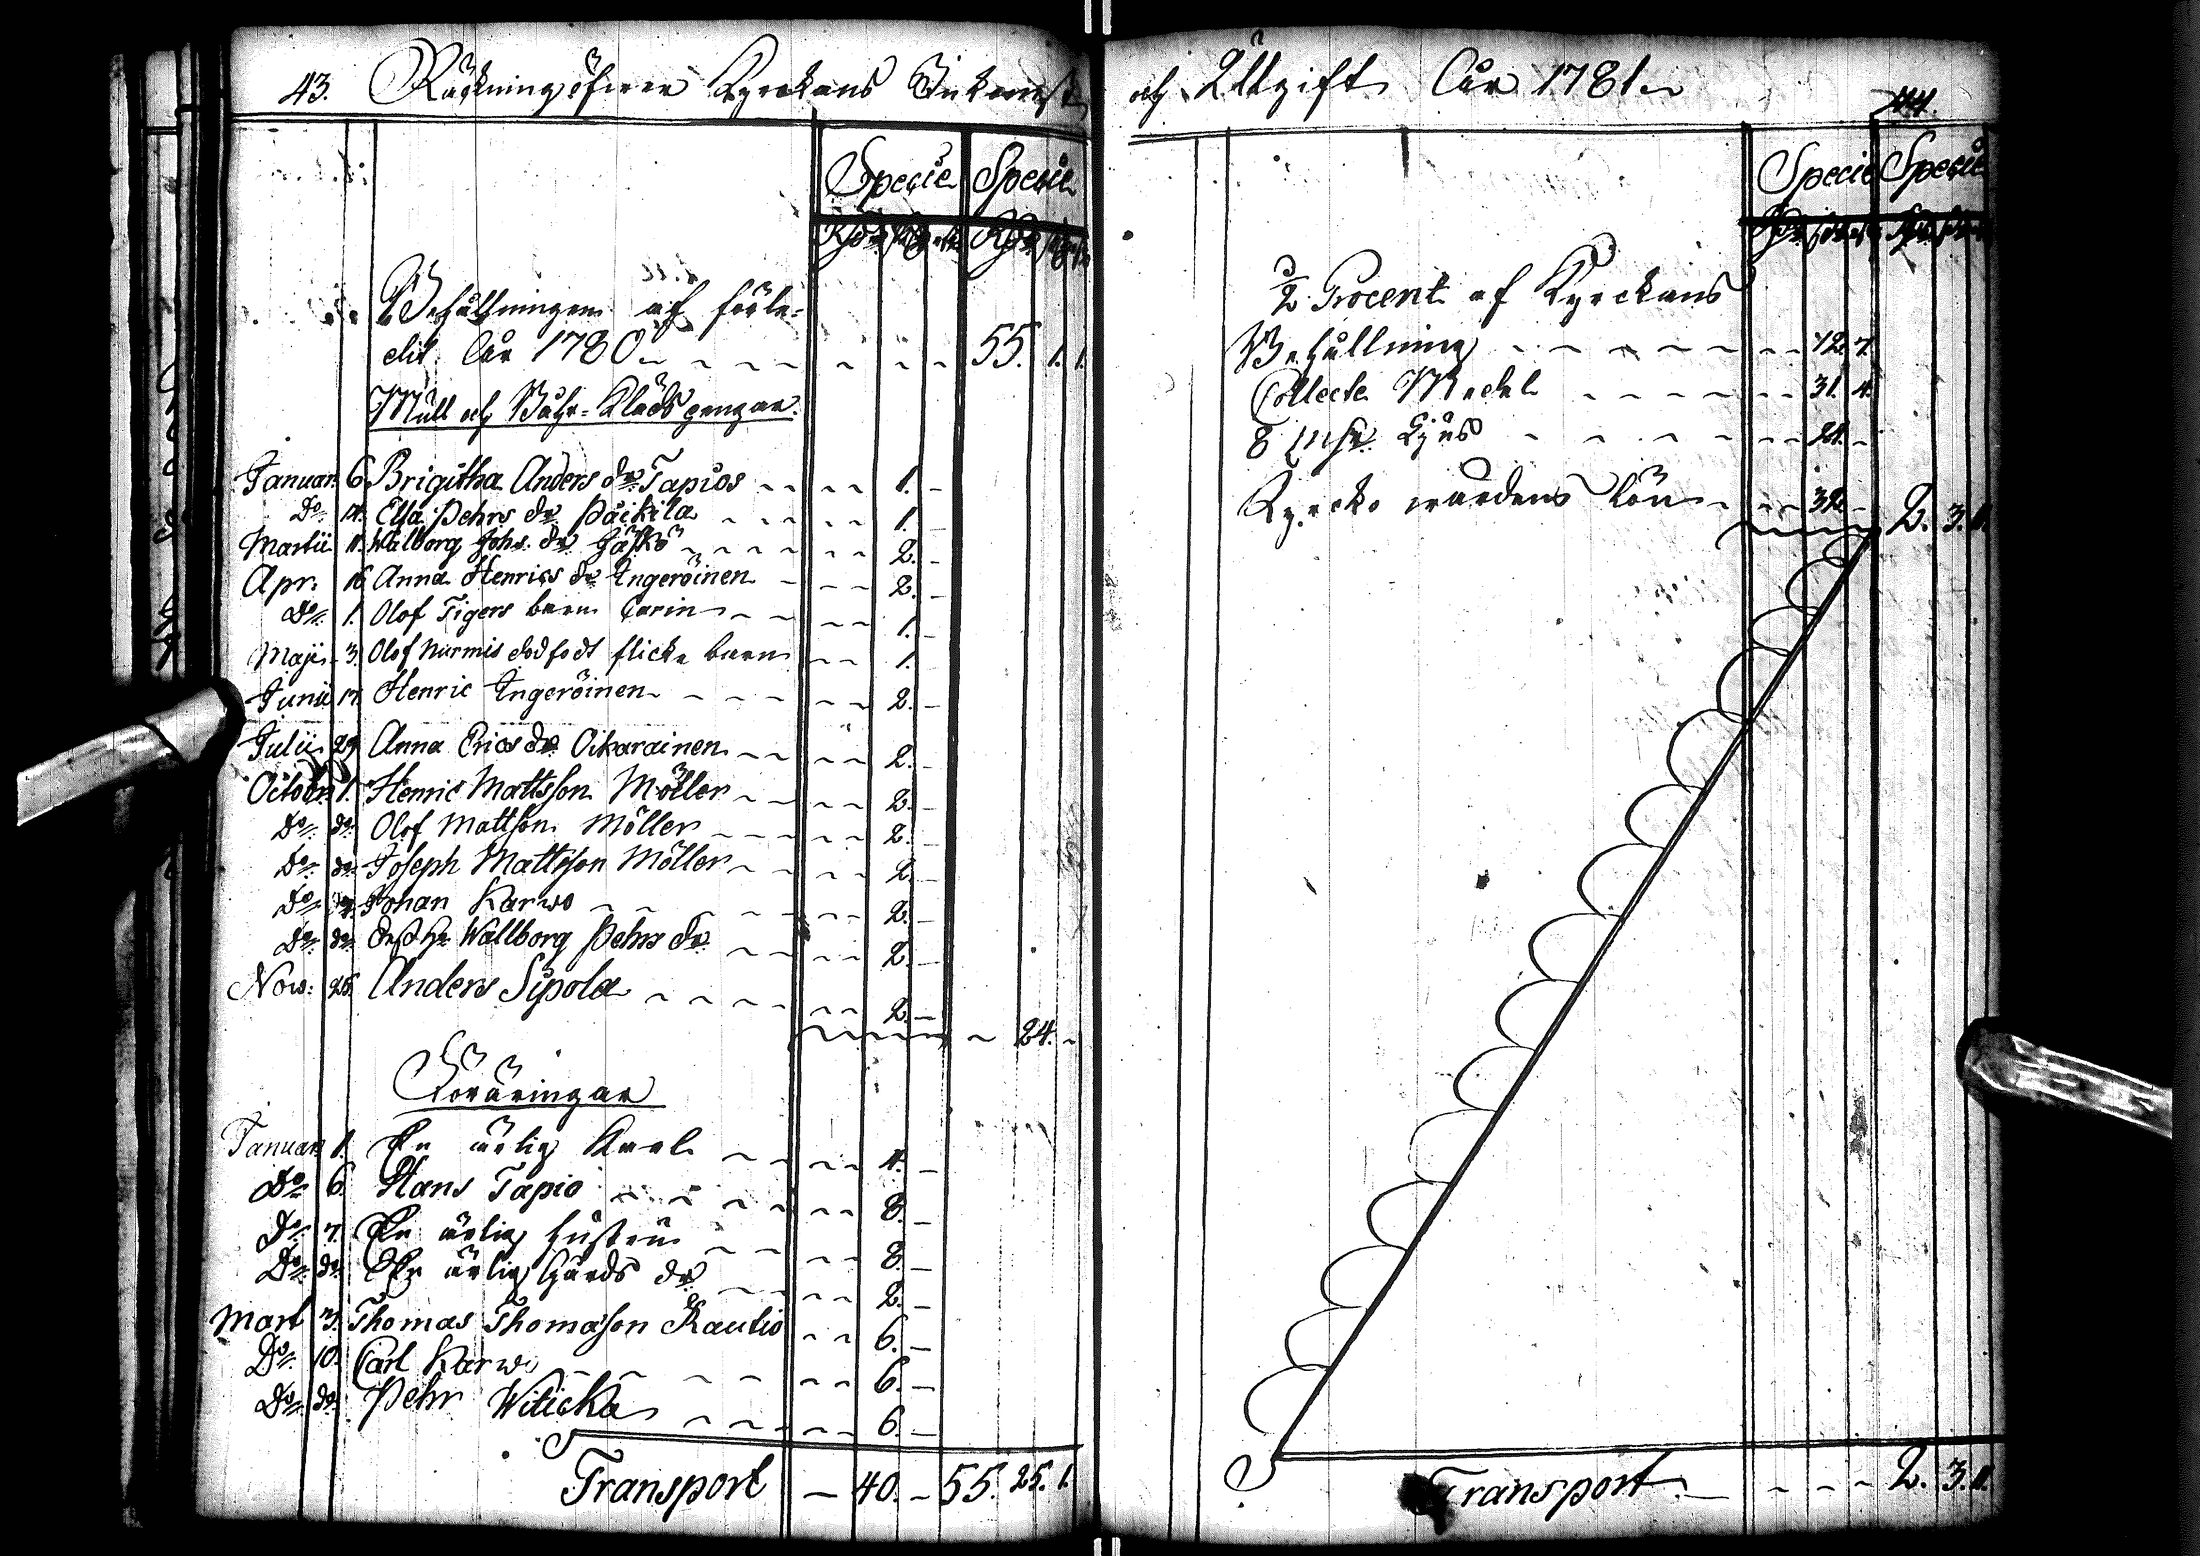 43. Räckning öfwer Kyrckans Inkomst
Specie Specie
Rdr Rdr
Behållningen af förle-
dit Åhr 1780 55. 1. 1.
Mull och Båhr-Kläds pengar.
Januar. 6. Brigitha Anders dr Tapios 1. -
Do 14. Elsa Pehrs dr Päikila 1. -
Martii 11. Walborg Johs. dr Häskö 2. -
Apr. 16 Anna Henrics dr Ingeröinen 2. -
Do 1. Olof Tigers barn Carin 1. -
Maji 3. Olof Nurmis dödfödt flicke barn 1. -
Junii 17. Henric Ingeröinen 2. -
Julii 29. Anna Erics dr Oikarainen 2. -
Octobr. 1. Henric Mattsson Möller 2. -
Do do Olof Mattson Möller 2. -
Do do Joseph Mattsson Möller 2. -
Do do Johan Karwo 2. -
Do do Dess h. Wallborg Pehrs dr 2. -
Now. 25. Anders Sipola 2. -
24. -
Föräringar
Januar. 1. En ärlig Karl 4. -
Do 6. Hans Tapio 8. -
Do 7. En ärlig hustru 8. -
Do do En ärlig Gårds dr 2. -
Mart 3. Thomas Thomasson Rautio 6. -
Do 10. Carl Karwo 6. -
Do do Pehr Witicka 6. -
Transport - 40. - 55. 25. 1.
och Uttgift Åhr 1781.
44.
Specie Specie
1/2 Procent af Kyrckans
Behållning 12. 7.
Collecte Medel 31. 4.
8 Ljus 24. -
Kyrcko wärdens Lön 32. - 2. 3. 11.
Transport 2. 3. 11.